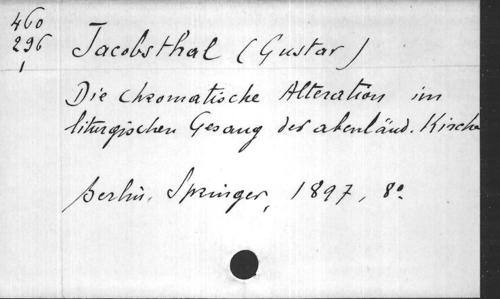 460
296
1
Jacobsthal (Gustav)
Die chromatische Alteration im
liturgischen Gesang der abenländ. Kirche
Berlin, Springer, 1897, 8°.